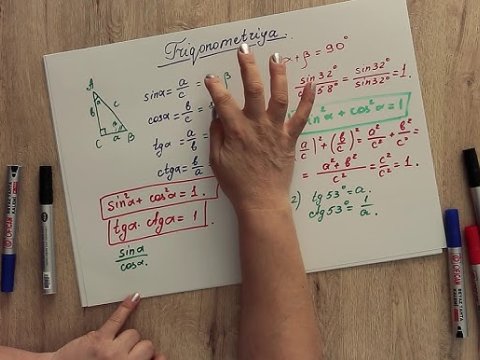 Trigonometriya.
A
b
c
C a B
α
sinα = a/c
cosα = b/c
tgα = a/b
ctgα = b/a
β
sin²α + cos²α = 1.
tgα · ctgα = 1
sinα/cosα.
α + β = 90°
sin32°/ 58° = sin32°/sin32° = 1.
sin²α + cos²α = 1
a/c)² + (b/c)² = a²/c² + b²/c² =
= a² + b²/c² = c²/c² = 1.
2) tg53° = a.
ctg53° = 1/a.